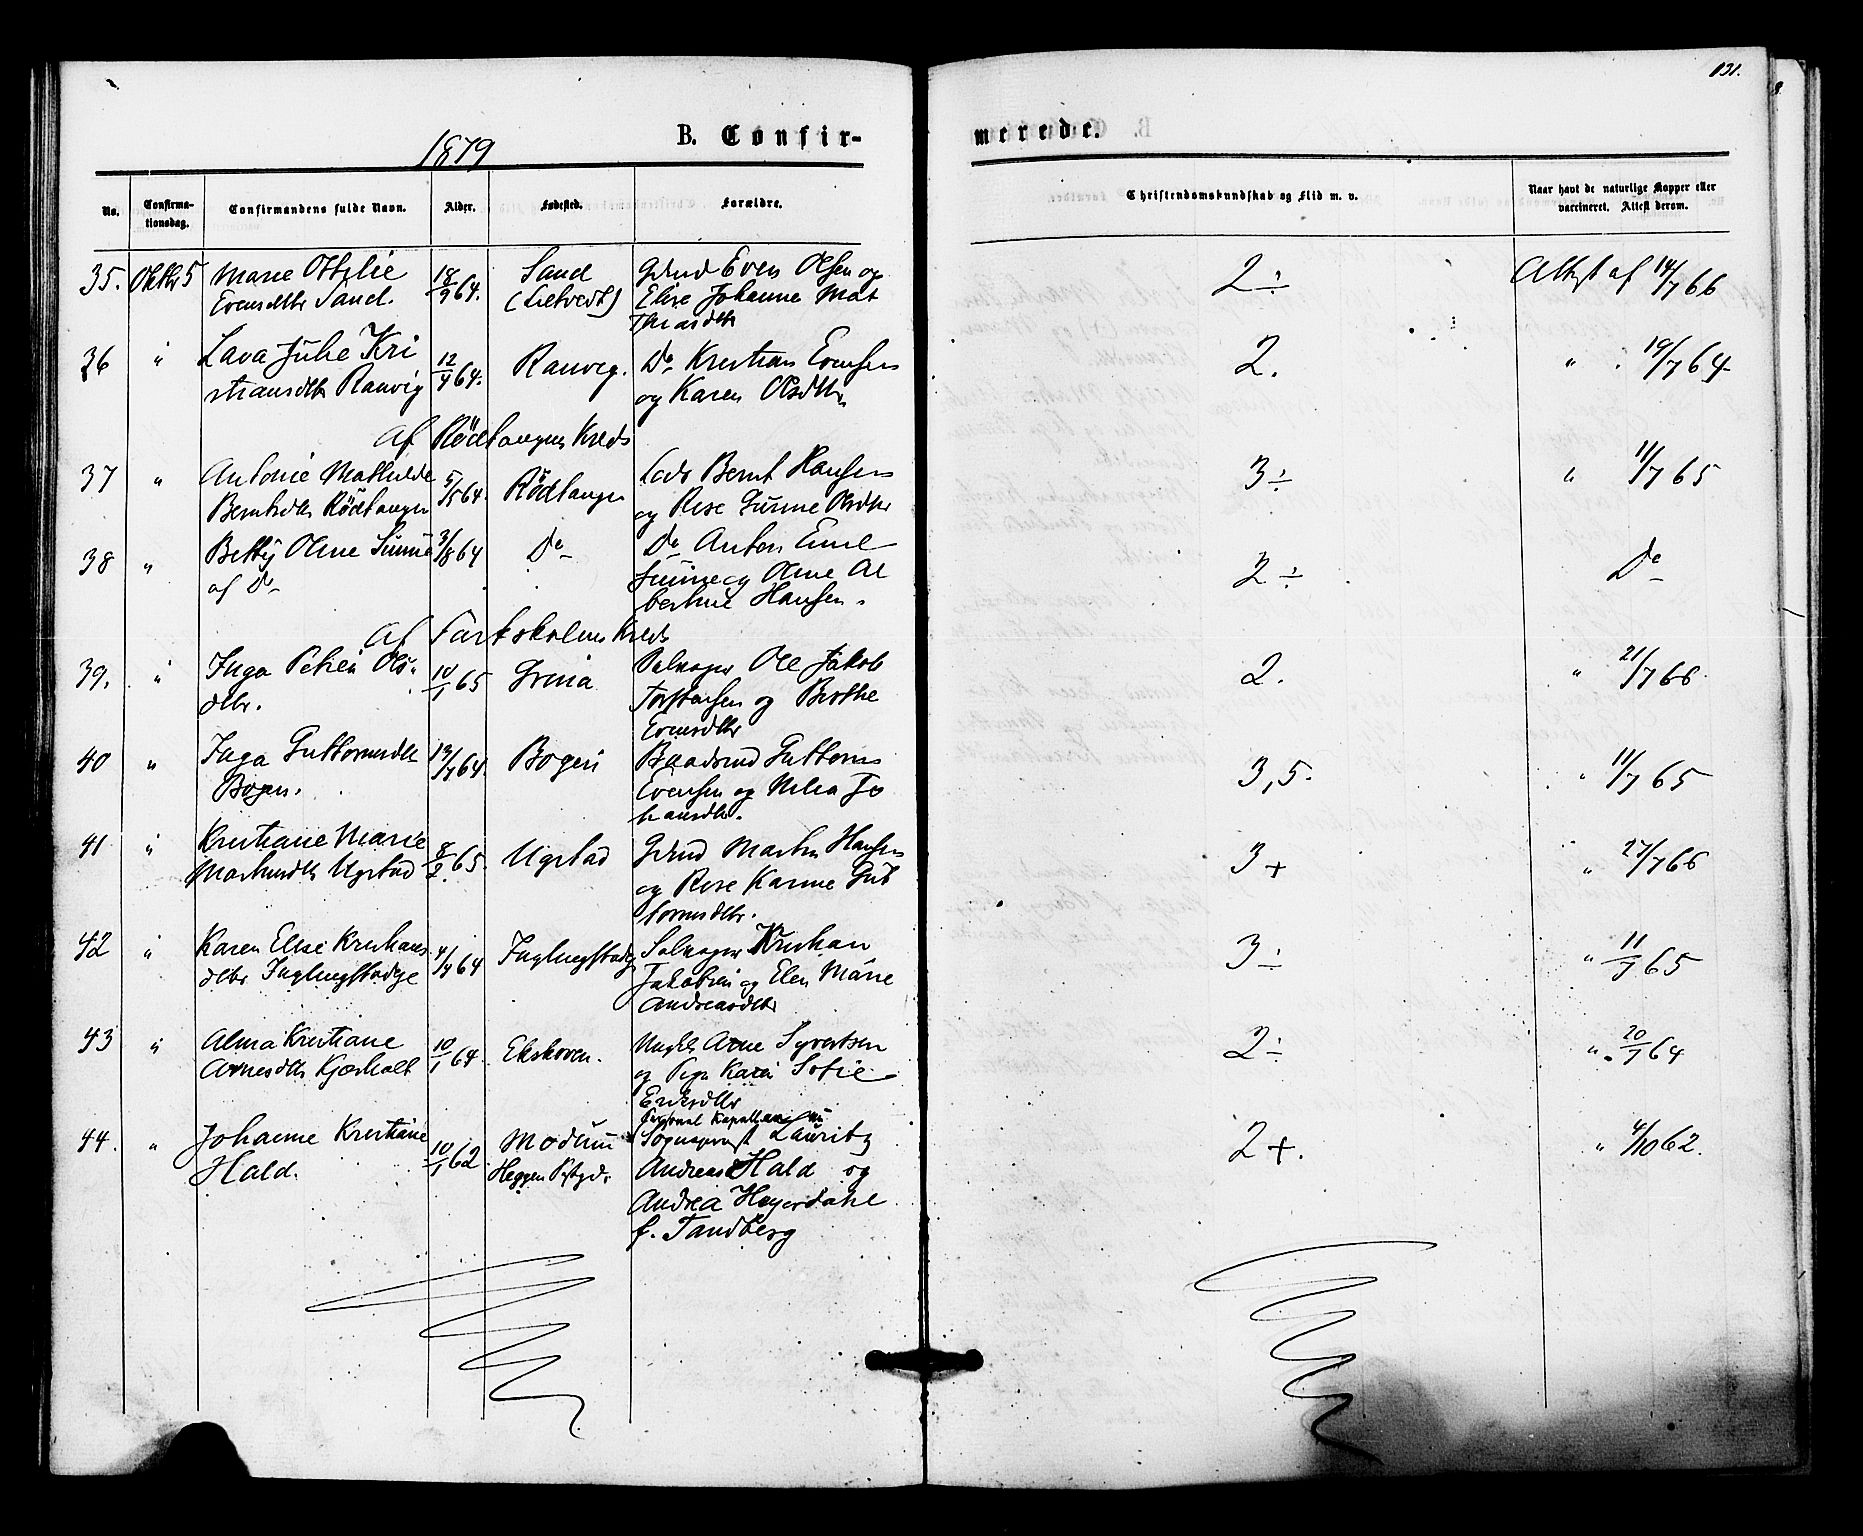 131.
1879
B. Confir-
merede.
No.
Confirma-
tionsdag.
Confirmandens fulde Navn.
Alder.
Fødested.
Forældre.
Christendomskundskab og Flid m. v.
Naar havt de naturlige Kopper eller
vaccineret. Attest derom.
35. Oktbr 5 Marie Ottilie 18/9 64. Sand Even Olsen og 2 ÷ Attest af 14/7 66
Evensdtr Sand. Elise Johanne Mat
thiasdtr
36 " Lava Julie Kri 12/4 64. Ranvig. Do Kristian Evensen 2. " 19/7 64
stiansdtr Ranvig og Karen Olsdtr
Af Rödtangen Kreds
37 " Antonie Mathilde 5/5 64. Rödtangen Bernt Hansen 3 ÷ " 11/7 65
Berntsdtr Rödtangen og Olsdtr
38 " Betty Oline 3/8 64 Do Do Anton Emil 2 ÷ Do
af Do og Oline Al
bertine Hansen.
Af Kreds
39. " Inga Ols- 10/1 65 Grina Selveger Ole Jakob 2. " 21/7 66
dtr. Torstensen og Berthe
Evensdtr
40 " Inga Guttormsdtr 13/7 64. Bogen Guttorm 3,5. " 11/7 65
Bogen. Evensen og Jo
hansdtr.
41 " Kristiane Marie 8/2 65. Ugstad Martin Hansen 3 + " 27/7 66
Martinsdtr Ugstad og Karine Gut
tormsdtr.
42 " Karen Elise Kristians 4/4 64 Selveger Kristian 3 ÷ " 11/7 65
dtr Jakobsen og Elen Marie
Andreasdtr
43 " Alma Kristiane 10/1 64. Ekskoven. Arne Syvertsen 2 ÷ " 20/7 64
Arnesdtr Kjærholt og Pige Karen Sofie
Eriksdtr
44. " Johanne Kristiane 10/1 62. Modum Personel Kapellan nu 2 +. " 4/10 62.
Hald. Heggen Sognepræst Lauritz
Andreas Hald og
Andrea Heyerdahl
f. Tandberg